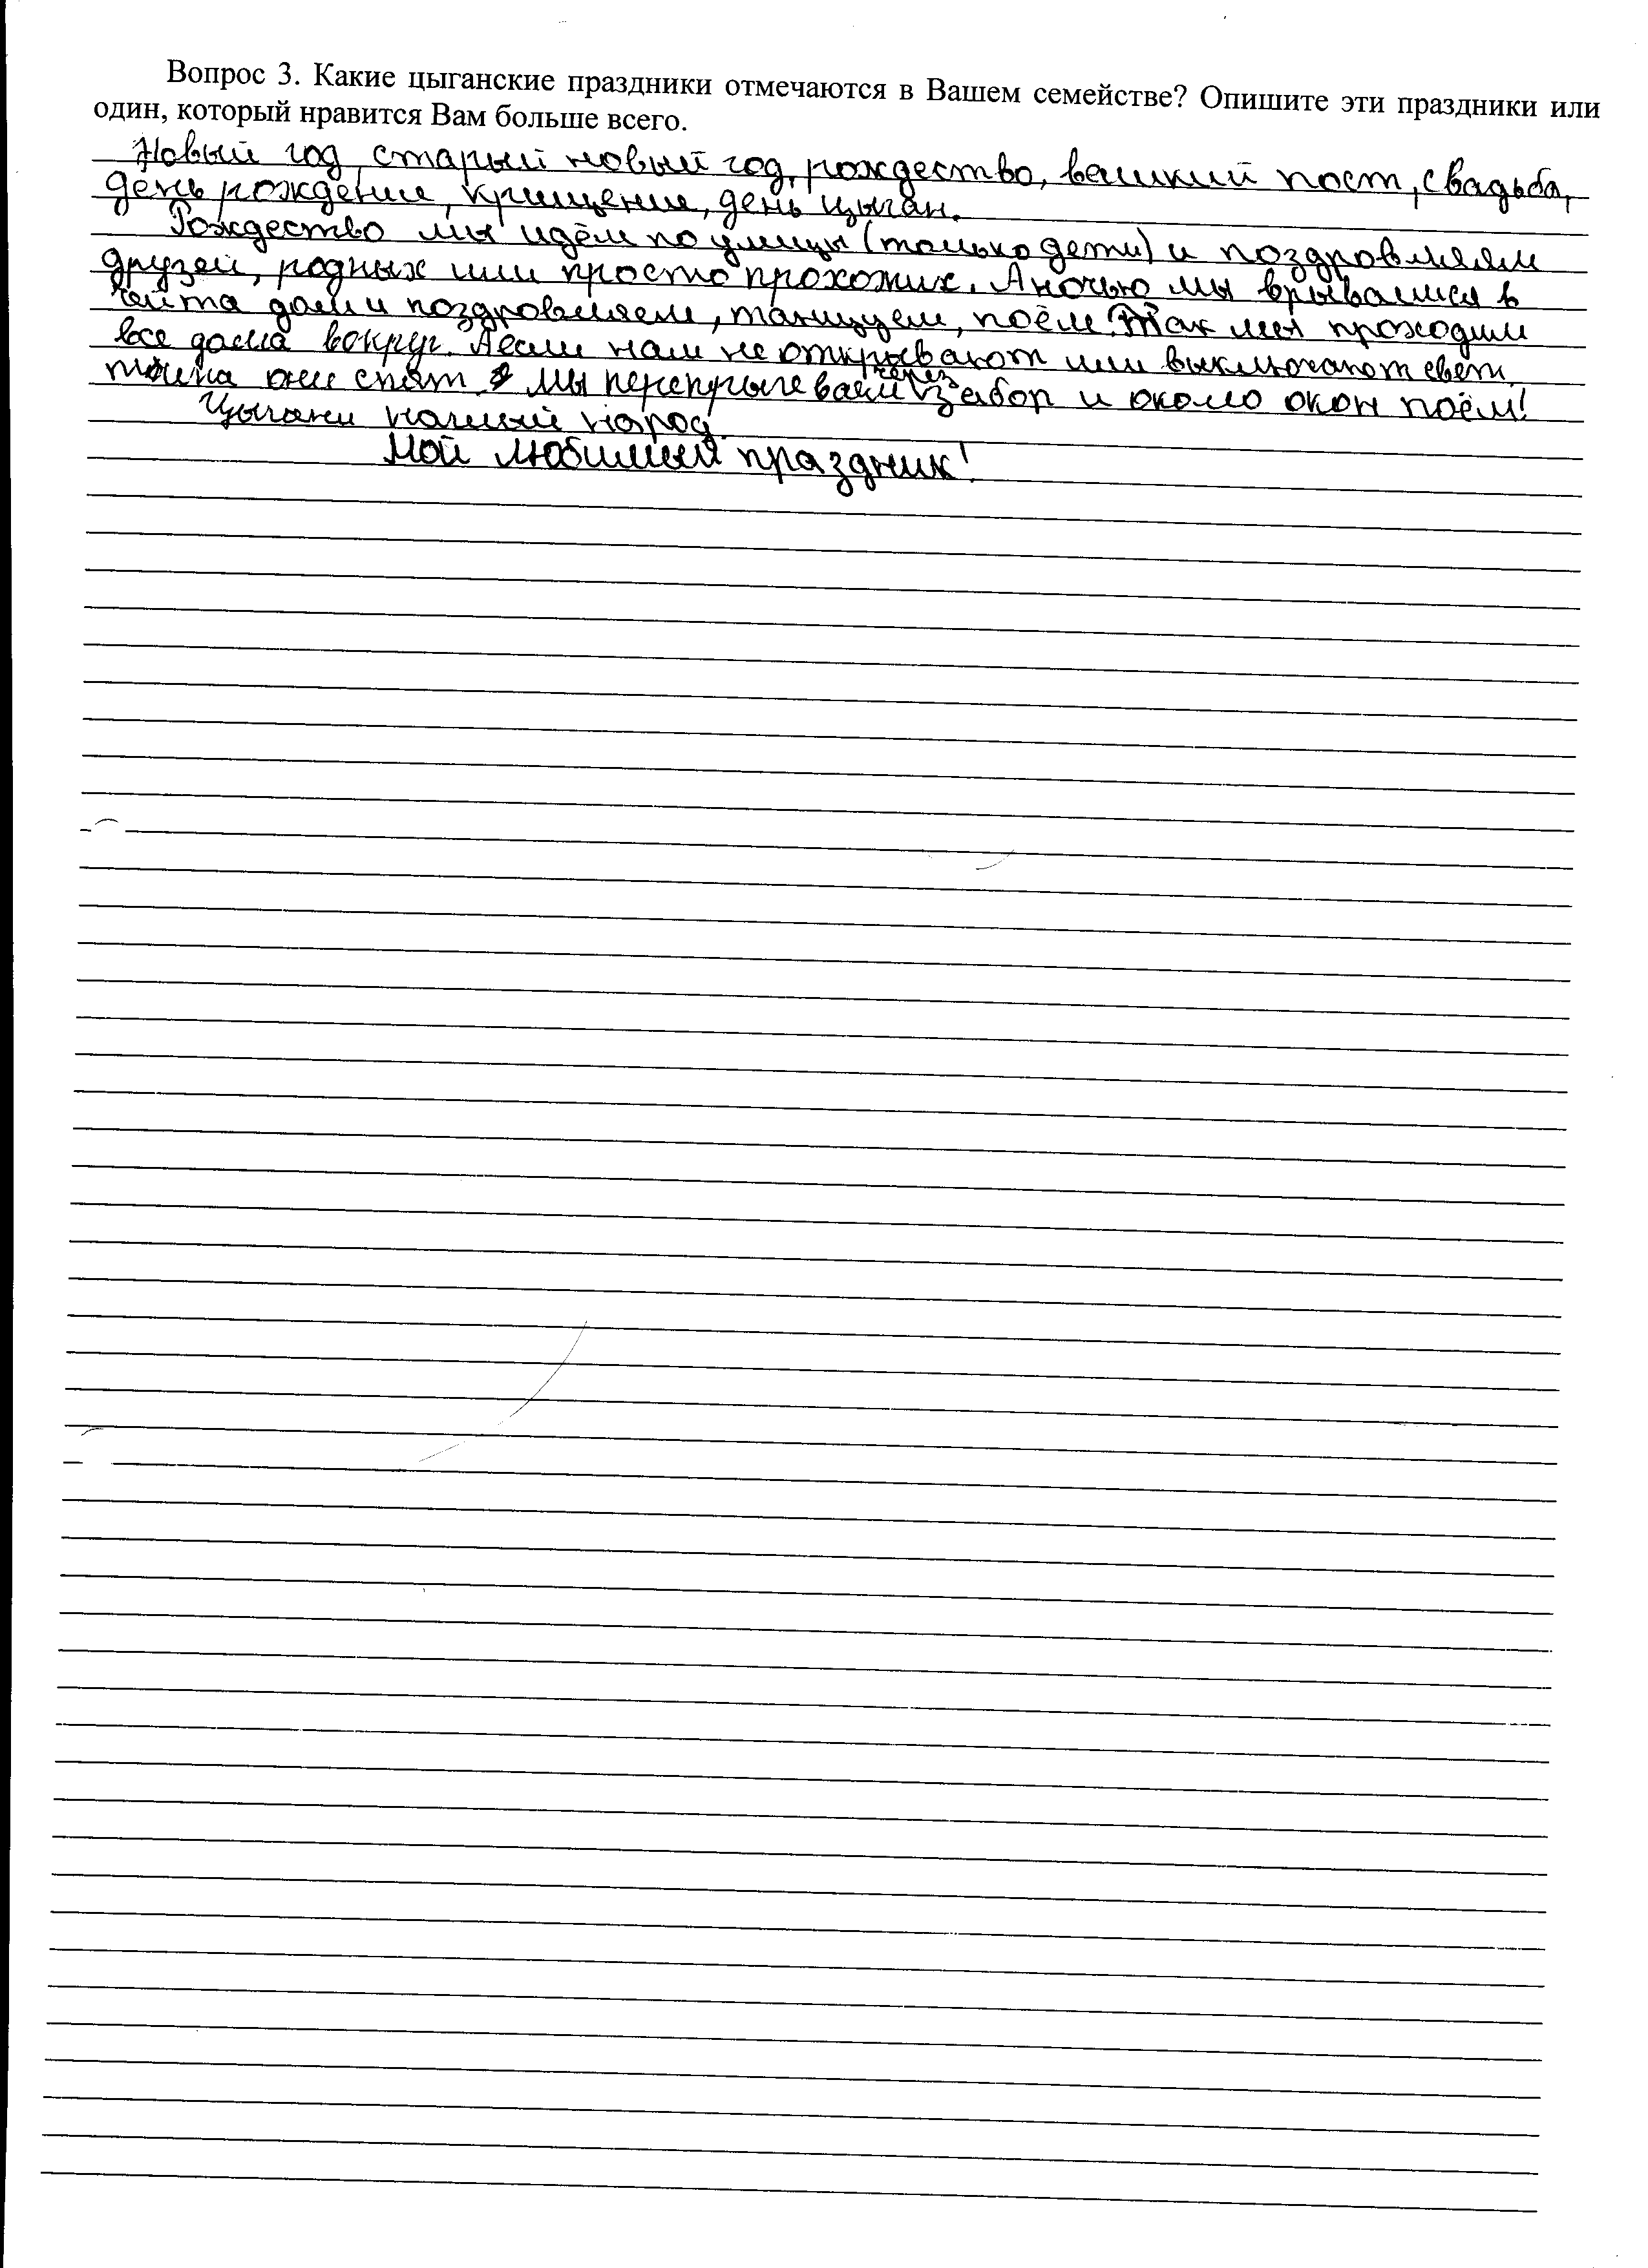 Вопрос 3. Какие цыганские праздники отмечаются в Вашем семействе? Опишите эти праздники или
один, который нравится Вам больше всего.
Новый год, старый новый год, рождество, великий пост, свадьба,
день рождение, крищение, день цыган.
Рождество мы идём по улицы (только дети) и поздровляем
друзей, родных или просто прохожих. А ночью мы врывалися в
чейта дом и поздровляем, танцуем, поём. Так мы проходим
все дома вокруг. А если нам не открывают или выключают свет
типа они спят. Мы перепрыгеваем через забор и около окон поём!
Цыгани наглый народ.
Мой любимый праздник!